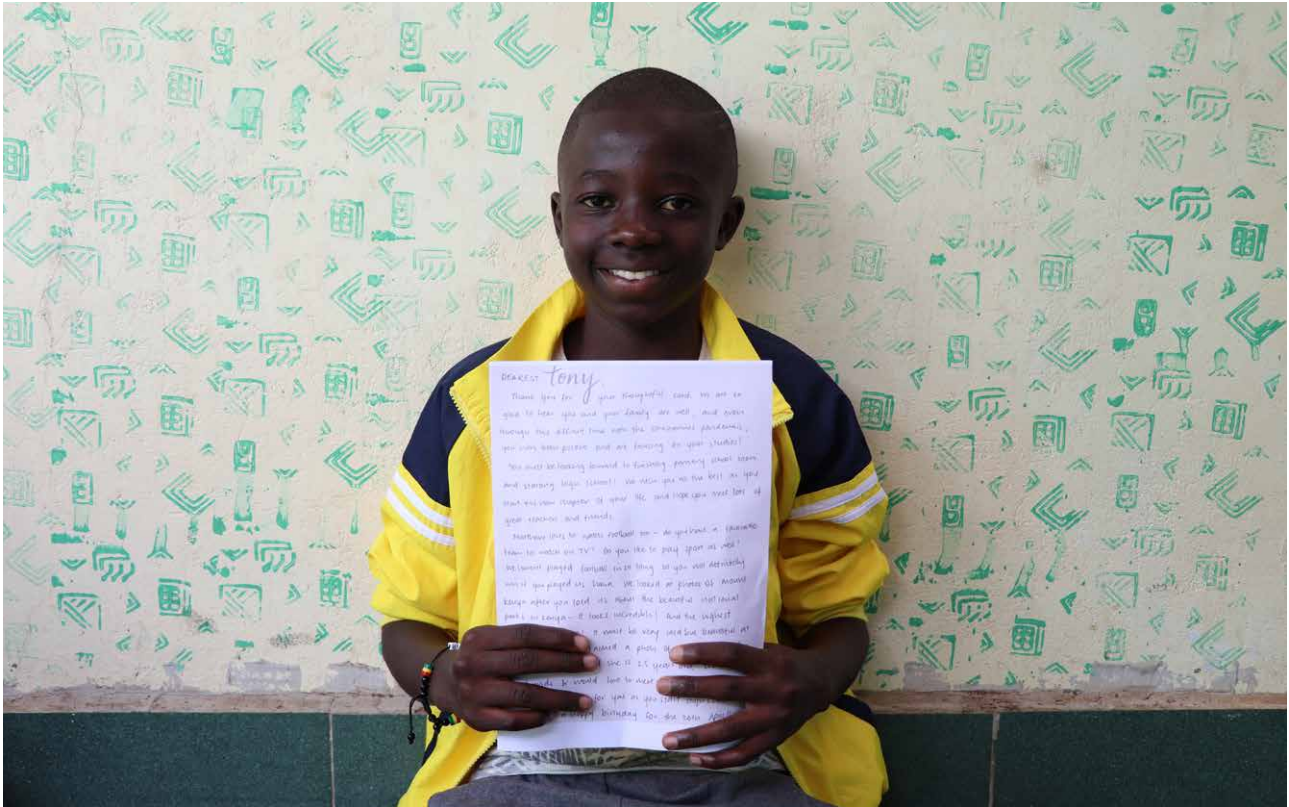 DEAREST Tony,
Thank you for your thoughtful card. We are so
good to hear you and your family are well, and even
through this difficult time with the coronavirus pandemic,
you have been positive and are focusing on your studies!
You must be looking forward to finishing primary school
and starting high school! We wish you all the best as you
start this new chapter of your life and hope you meet lots of
great teachers and friends.
Matthew likes to watch football too - do you have a favourite
team to watch on TV? Do you like to play sport as well?
We haven't played football in so long so you will definitely
win if you played us haha. We looked at photos of Mount
Kenya after you told us about the beautiful national
parks in Kenya - it looks incredible! And the highest
it must be very
a photo of
she is 2.5 years
would love to meet
for you as you start
happy birthday for the 20th